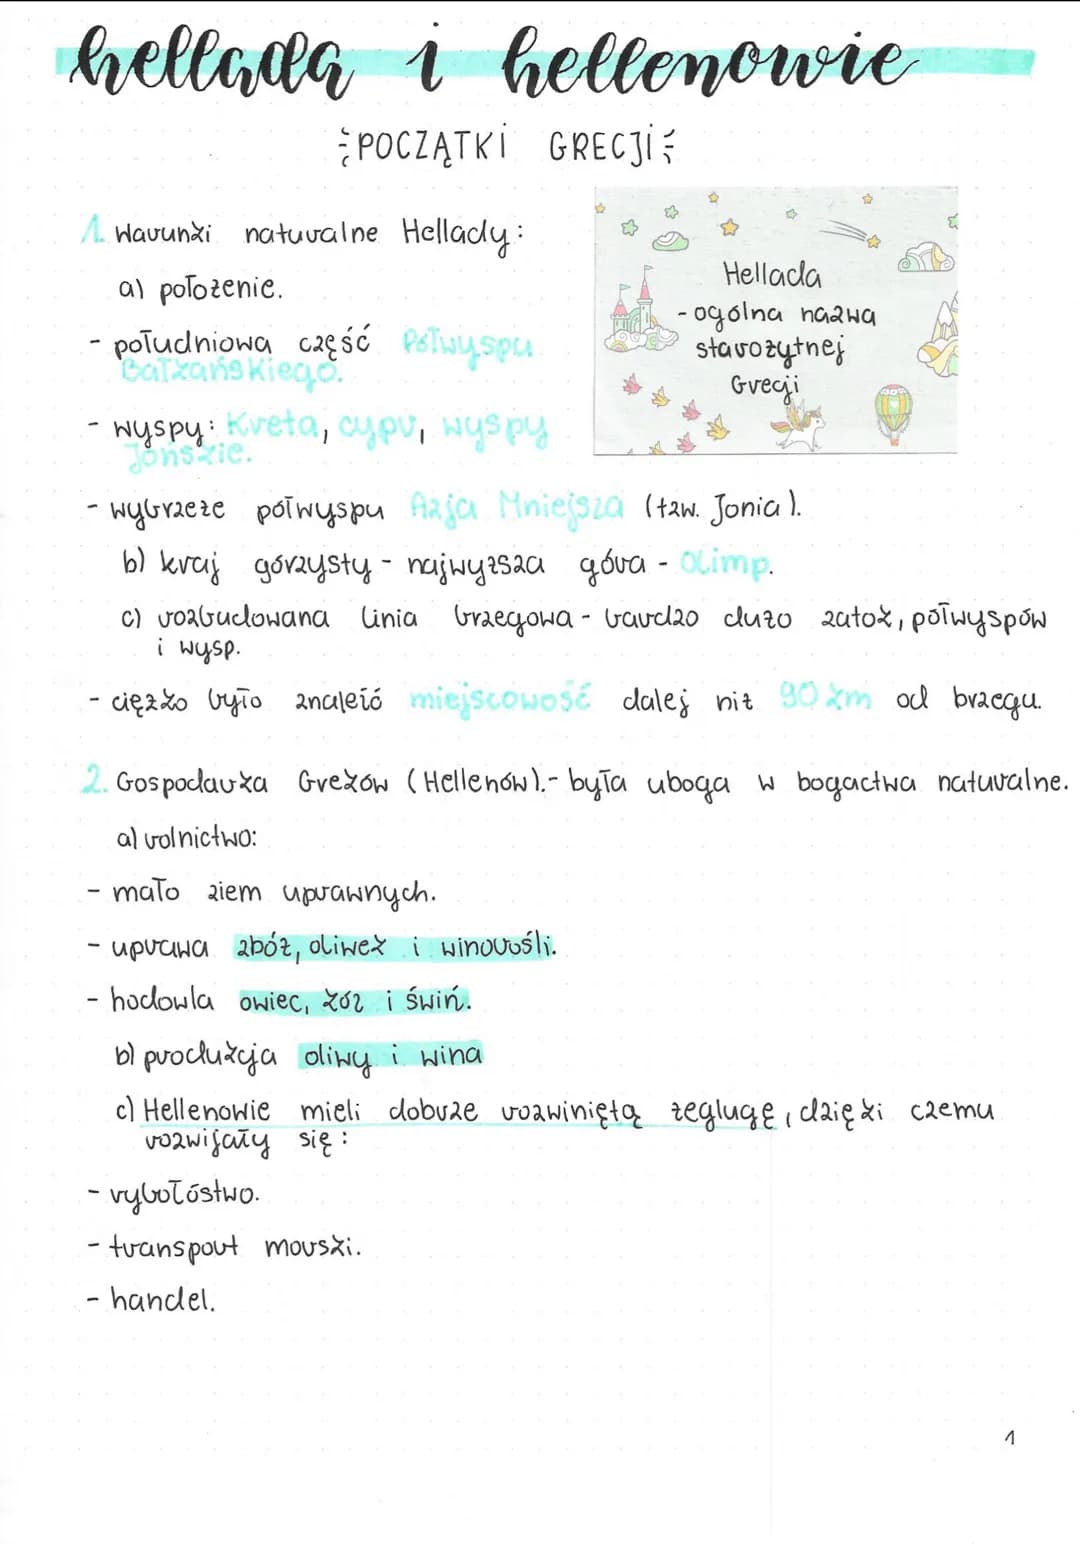 hellada i hellenowie
POCZĄTKI GRECJI
1. Warunki naturalne Hellady:
a) położenie.
- południowa część Półwyspu
Bałkańskiego.
Hellada
- ogólna nazwa
starożytnej
Grecji
- wyspy: Kreta, cypr, wyspy
Jońskie.
- wybrzeże półwyspu Azja Mniejsza (tzw. Jonia).
b) kraj górzysty - najwyższa góra - Olimp.
c) rozbudowana linia brzegowa - bardzo dużo zatok, półwyspów
i wysp.
- ciężko było znaleźć miejscowość dalej niż 90 km od brzegu.
2. Gospodarka Greków (Hellenów).- była uboga w bogactwa naturalne.
a) rolnictwo:
- mało ziem uprawnych.
- uprawa zbóż, oliwek i winorośli.
- hodowla owiec, kóz i świń.
b) produkcja oliwy i wina
c) Hellenowie mieli dobrze rozwiniętą żeglugę, dzięki czemu
rozwijały się:
- rybołóstwo.
- transport morski.
- handel.
1